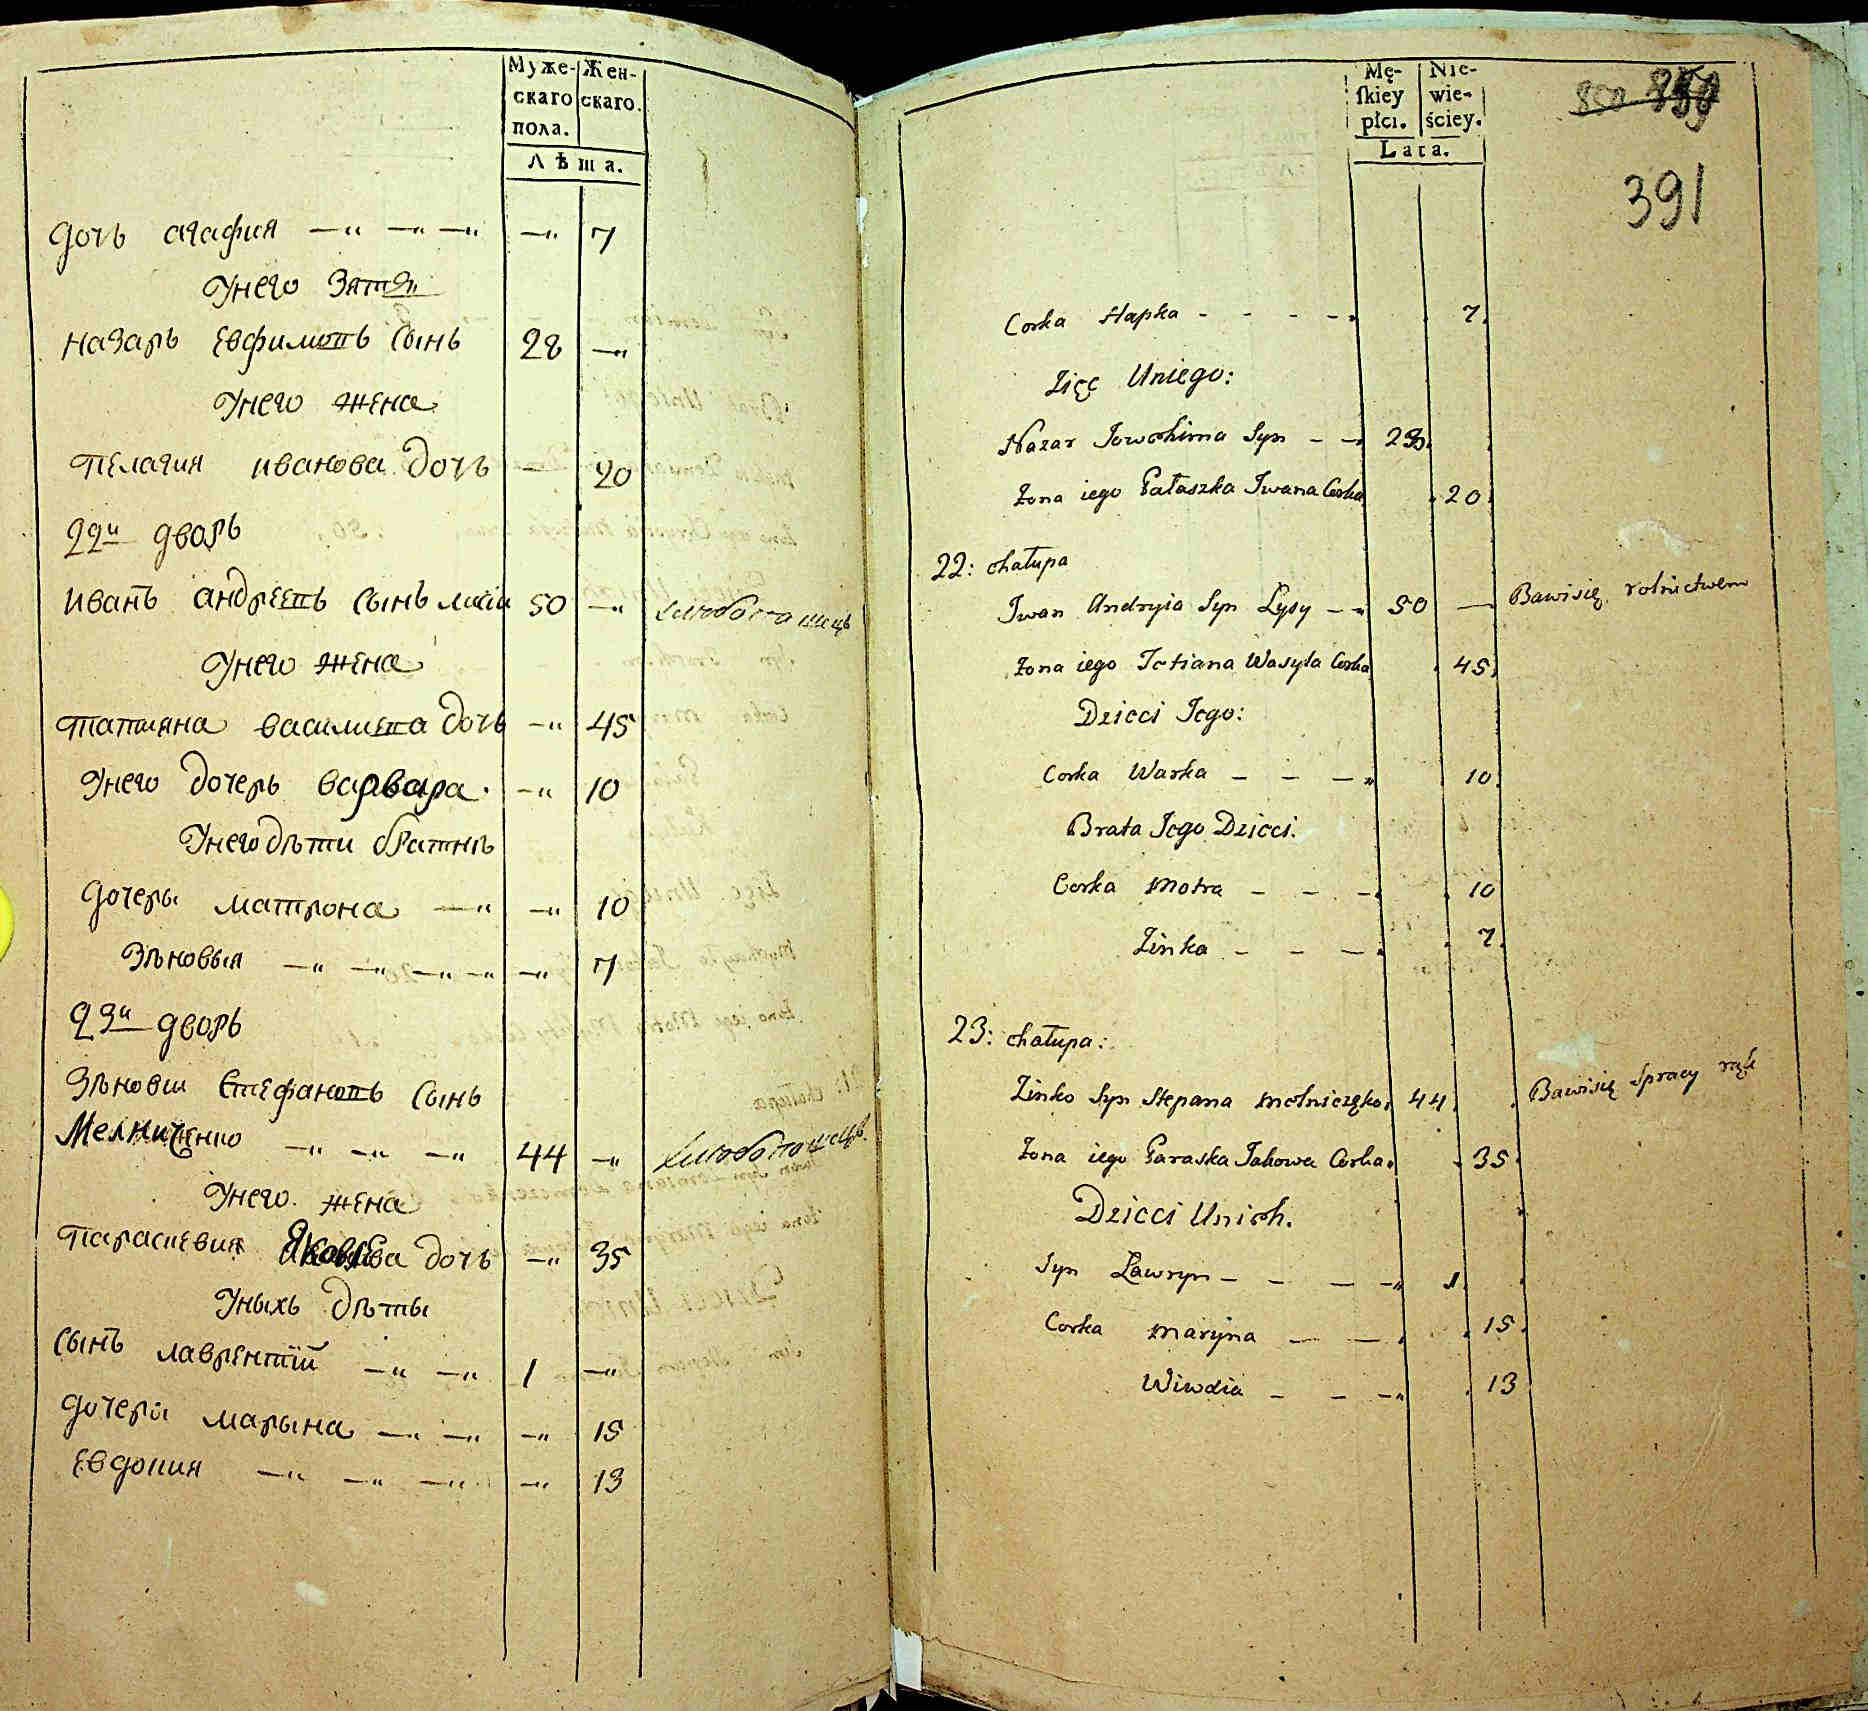 Муже-
скаго
пола.
Жен-
скаго.
Лѣта.
дочь агафия — — — — 7
Унего Зятя
назаръ Евфимовъ сынъ 28 —
Унего жена
пелагия иванова дочь — 20
22й дворъ
иванъ андреевъ сынъ лисии 50 — хлебопашецъ
Унего жена
татияна василиева дочь — 45
Унего дочерь варвара — 10
Унего дѣти братнѣ
дочеры матрона — — 10
Зѣновыя — — — — — 7
23й дворъ
Зѣновии Стефановъ сынъ
Мелниченко — — — 44 — хлебопашецъ
Унего жена
параскевия Яковлева дочь — 35
Уныхъ дѣты
сынъ лаврентий — — 1 —
дочери марына — — — 15
Евдокия — — — — 13
Mę-
skiey
płci.
Nie-
wie-
ściey.
Lata.
850
391
Corka Hapka - - - - 7.
Zięć Uniego:
Nazar Jowchima Syn - - 28.
Żona iego Pałaszka Iwana Corka 20.
22: chałupa
Iwan Andryia Syn Łysy - - 50 — Bawi się rolnictwem
Żona iego Tatiana Wasyla Corka 45.
Dzieci Jego:
Corka Warka - - - 10.
Brata Jego Dzieci.
Corka Motra - - - 10
Zinka - - - 7.
23: chałupa:
Zinko Syn Stepana Melniczęko. 44. Bawi się Spracy rąk
Żona iego Paraska Jakowa Corka. 35.
Dzieci Unich.
Syn Ławryn - - - - 1.
Corka Maryna - - 15.
Wiwdia - - - 13